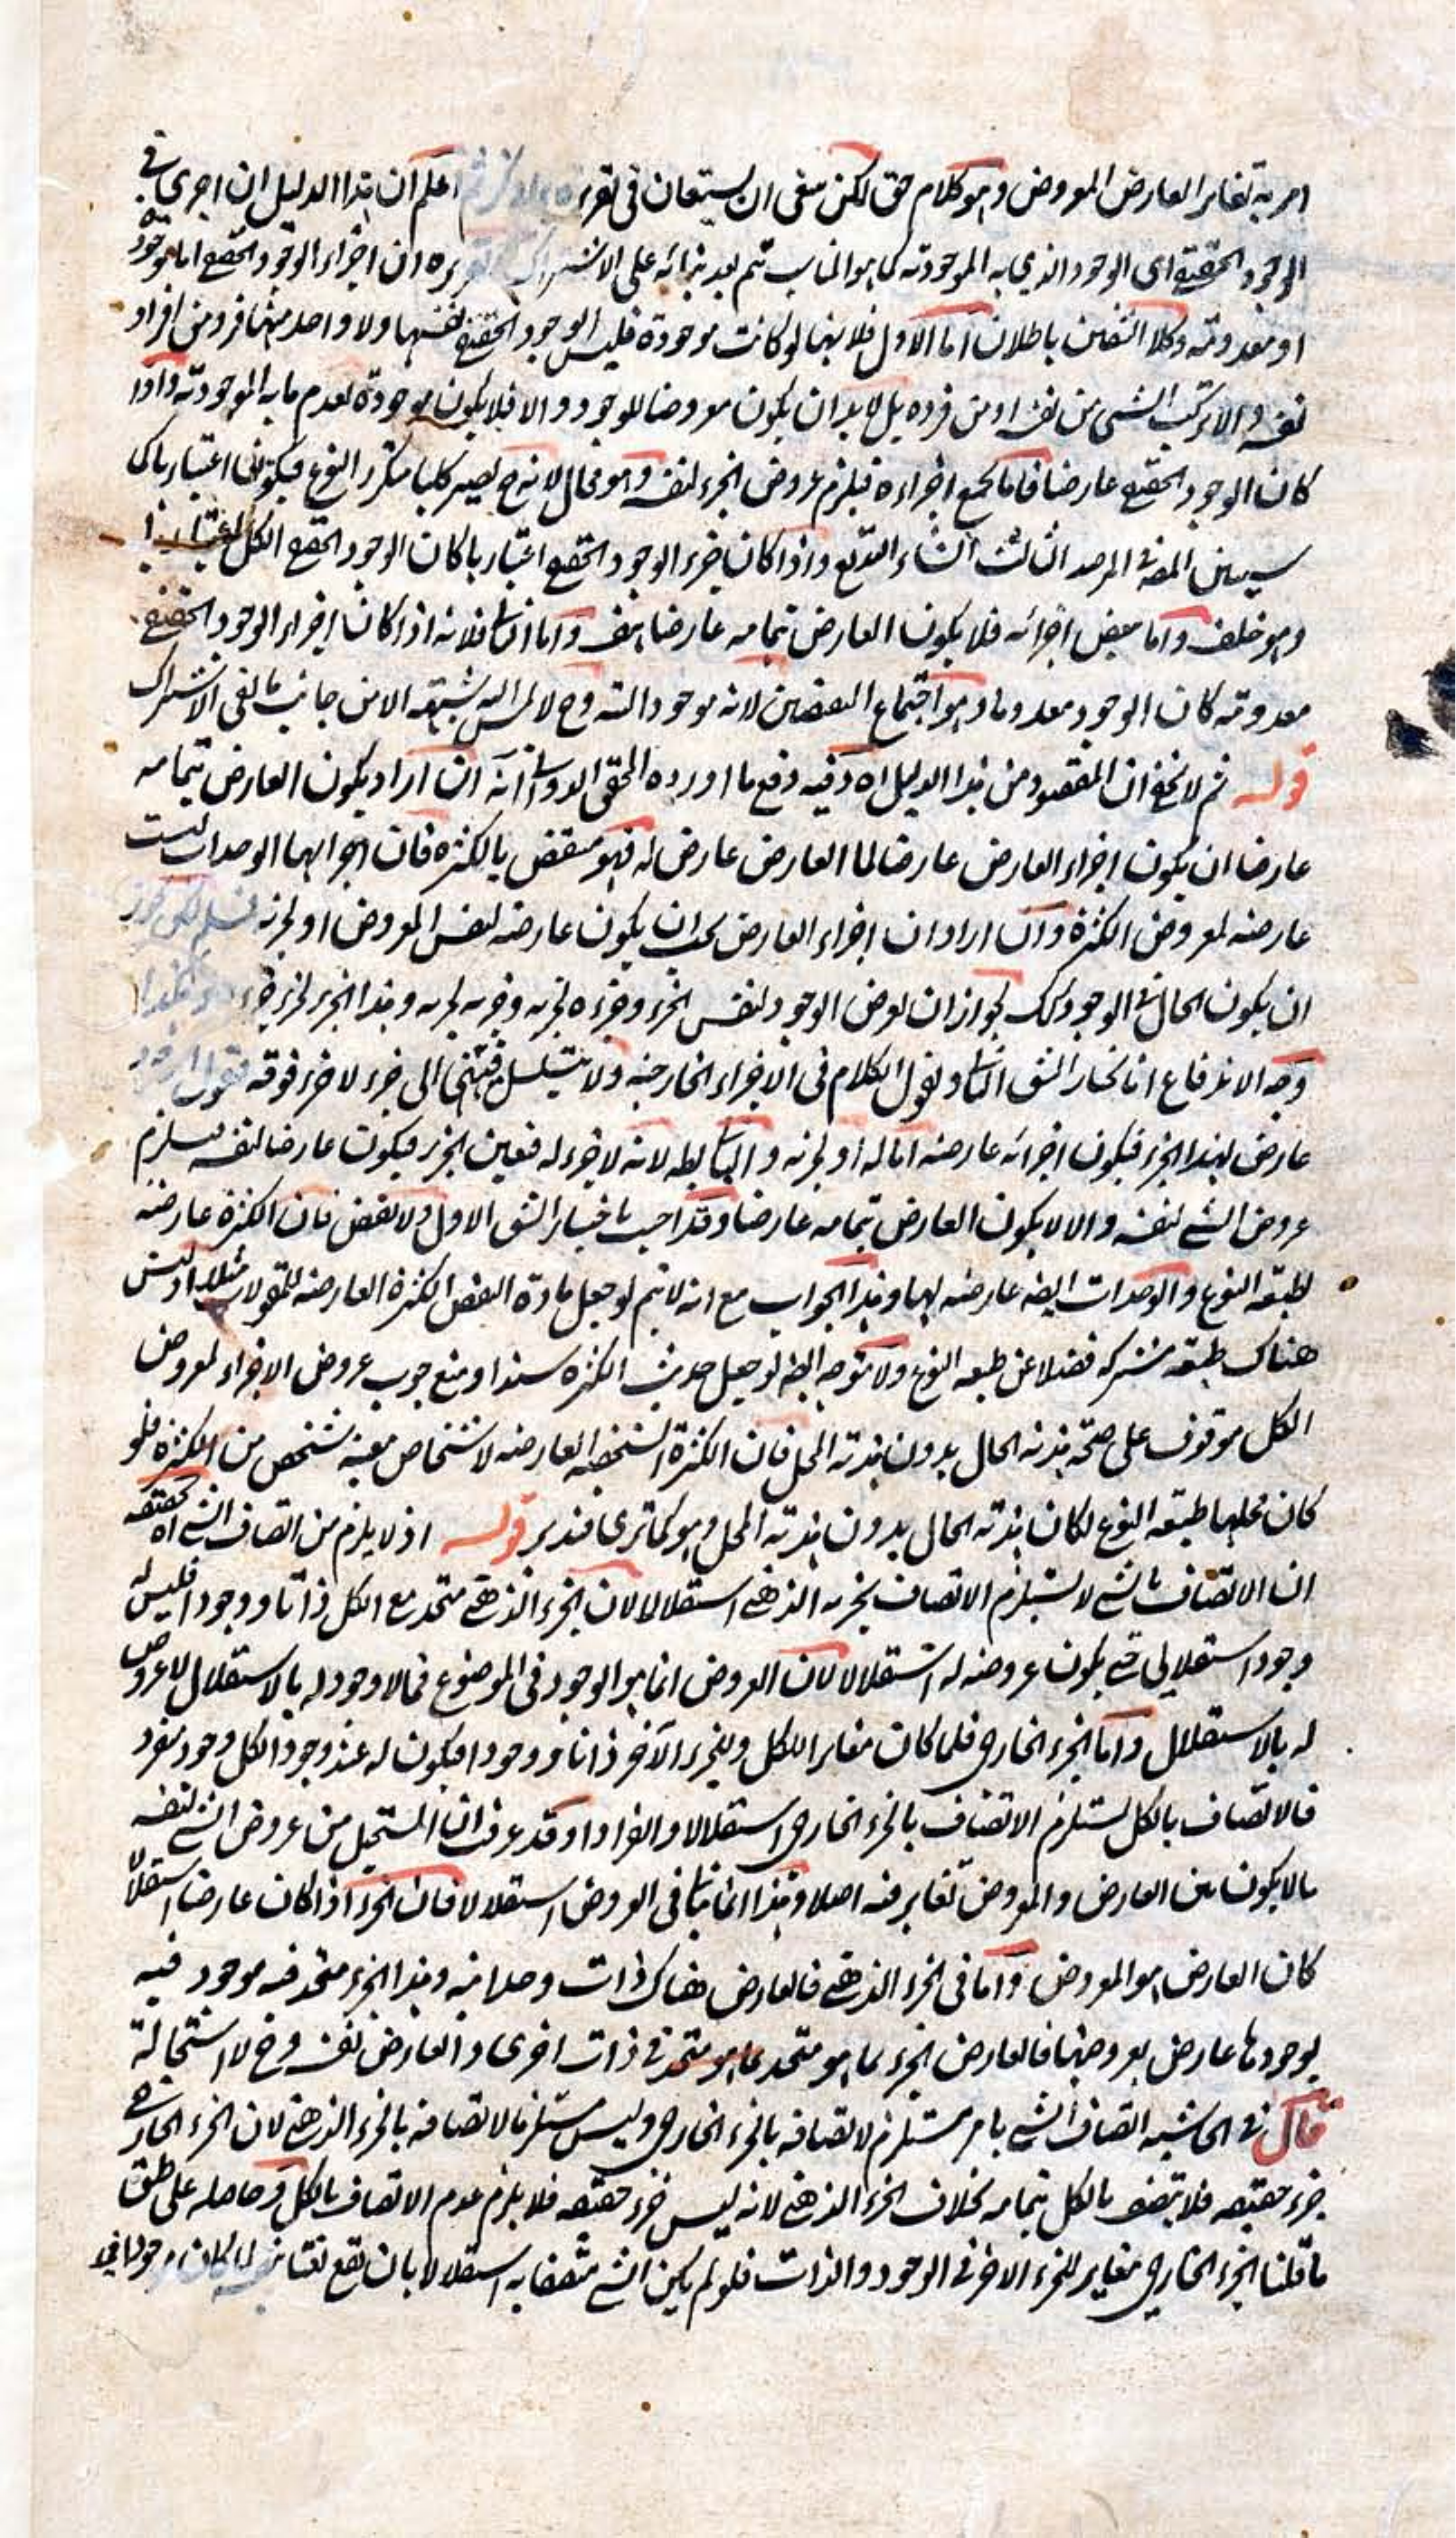 امر به تغاير العارض المعروض وهو كلام حق لكن ينبغي ان يستعان في تقرير اعلم ان هذا الدليل ان اجرى في
الوجود الحقيقي اى الوجود الذي به الموجودية كما هو المناسب تم بعد بنائه على الاشتراك تقريره ان اجزاء الوجود الحقيقي اما موجودة
او معدومة وكلا الشقين باطلان اما الاول فلانها لو كانت موجودة فليس الوجود الحقيقي نفسها ولا واحد منهما فردا من افراد
نفسه والا تركب الشئ من نفسه او من فرده بل لا بد ان يكون معروضا للوجود والا فلا يكون موجودة لعدم ما به الموجودية واذا
كان الوجود الحقيقي عارضا فاما لجميع اجزاءه فيلزم عروض الجزء لنفسه وهو محال لانه ح يصير كليا متكرر النوع فيكون اعتباريا كما
سيبين المص في المرصد الثالث ان شاء الله تع واذا كان جزء الوجود الحقيقي اعتباريا كان الوجود الحقيقي الكل اعتباريا
وهو خلف واما لبعض اجزائه فلا يكون العارض بتمامه عارضا هف واما الثاني فلانه اذا كان اجزاء الوجود الحقيقي
معدومة كان الوجود معدوما وهو اجتماع النقيضين لانه موجود البتة وح لا شبهة الا من جانب نفي الاشتراك
قوله ثم لا يخفى ان المقصود من هذا الدليل اه وفيه دفع ما اورده المحقق الدواني انه ان اراد بكون العارض بتمامه
عارضا ان يكون اجزاء العارض عارضا لما العارض عارض له فهو منتقض بالكثرة فان اجزائها الوحدات ليست
عارضة لمعروض الكثرة وان اراد ان اجزاء العارض يجب ان يكون عارضة لنفس المعروض او لجزئه
ان يكون الحال في الوجود كك لجواز ان يعرض الوجود لنفس الجزء وجزءه لجزئه وجزئه لجزئه وهذا الجزء لجزئه
وجه الاندفاع انا نختار الشق الثاني ونقول الكلام في الاجزاء الخارجية ولا يتسلسل فينتهي الى جزء لا جزء فوقه
عارض لهذا الجزء فيكون اجزائه عارضة اما له او لجزئه والثاني بط لانه لا جزء له فتعين الجزء فيكون عارضا لنفسه فيلزم
عروض الشئ لنفسه والا لا يكون العارض بتمامه عارضا وقد اجيب باختيار الشق الاول ولا نقض فان الكثرة عارضة
لطبيعة النوع والوحدات ايضا عارضة لها وهذا الجواب مع انه لا يتم لو جعل مادة النقض الكثرة العارضة للمقولات مثلا اذ ليس
هناك طبيعة مشتركة فضلا عن طبيعة النوع ولا يتوجه ايضا لو جعل حديث الكثرة سندا ومنع وجوب عروض الاجزاء لمعروض
الكل موقوف على صحة بدنه الحال بدون بدنه المحل فان الكثرة الشخصية العارضة لاشخاص معينة شخص من الكثرة فلو
كان محلها طبيعة النوع لكان الحال بدون المحل وهو كما ترى فتدبر قوله اذ لا يلزم من اتصاف الشئ اه تحقيقه
ان الاتصاف بالشئ لا يستلزم الاتصاف بجزئه الذهني استقلالا لان الجزء الذهني متحد مع الكل ذاتا ووجودا فليس له
وجود استقلالي حتى يكون عروضه له استقلالا لان العروض انما هو الوجود في الموضوع فما لا وجود له بالاستقلال لا عروض
له بالاستقلال واما الجزء الخارجي فلما كان مغايرا للكل وللجزء الآخر ذاتا ووجودا فيكون له عند وجود الكل وجود منفرد
فالاتصاف بالكل يستلزم الاتصاف بالجزء الخارجي استقلالا وانفرادا وقد عرفت ان المستحيل من عروض الشئ لنفسه
ما لا يكون بين العارض والمعروض تغاير فيه اصلا وهذا انما يأتي في العروض استقلالا فان الجزء اذا كان عارضا استقلالا
كان العارض هو المعروض واما في الجزء الذهني فالعارض هناك ذات وحدانية وهذا الجزء متحد فيه موجود فيه
بوجودها عارض بعروضها فالعارض الجزء بما هو متحد في ذات اخرى والعارض نفسه وح لا استحالة
قال في الحاشية اتصاف الشئ بامر مستلزم لاتصافه بالجزء الخارجي وليس مستلزما لاتصافه بالجزء الذهني لان الجزء الخارجي
جزء حقيقة فلا يتصف بالكل بتمامه بخلاف الجزء الذهني لانه ليس جزء حقيقة فلا يلزم عدم الاتصاف بالكل وحاصله على طبق
ما قلنا الجزء الخارجي مغاير للجزء الاخر في الوجود والذات فلو لم يكن الشئ متصفا به استقلالا بان يقع